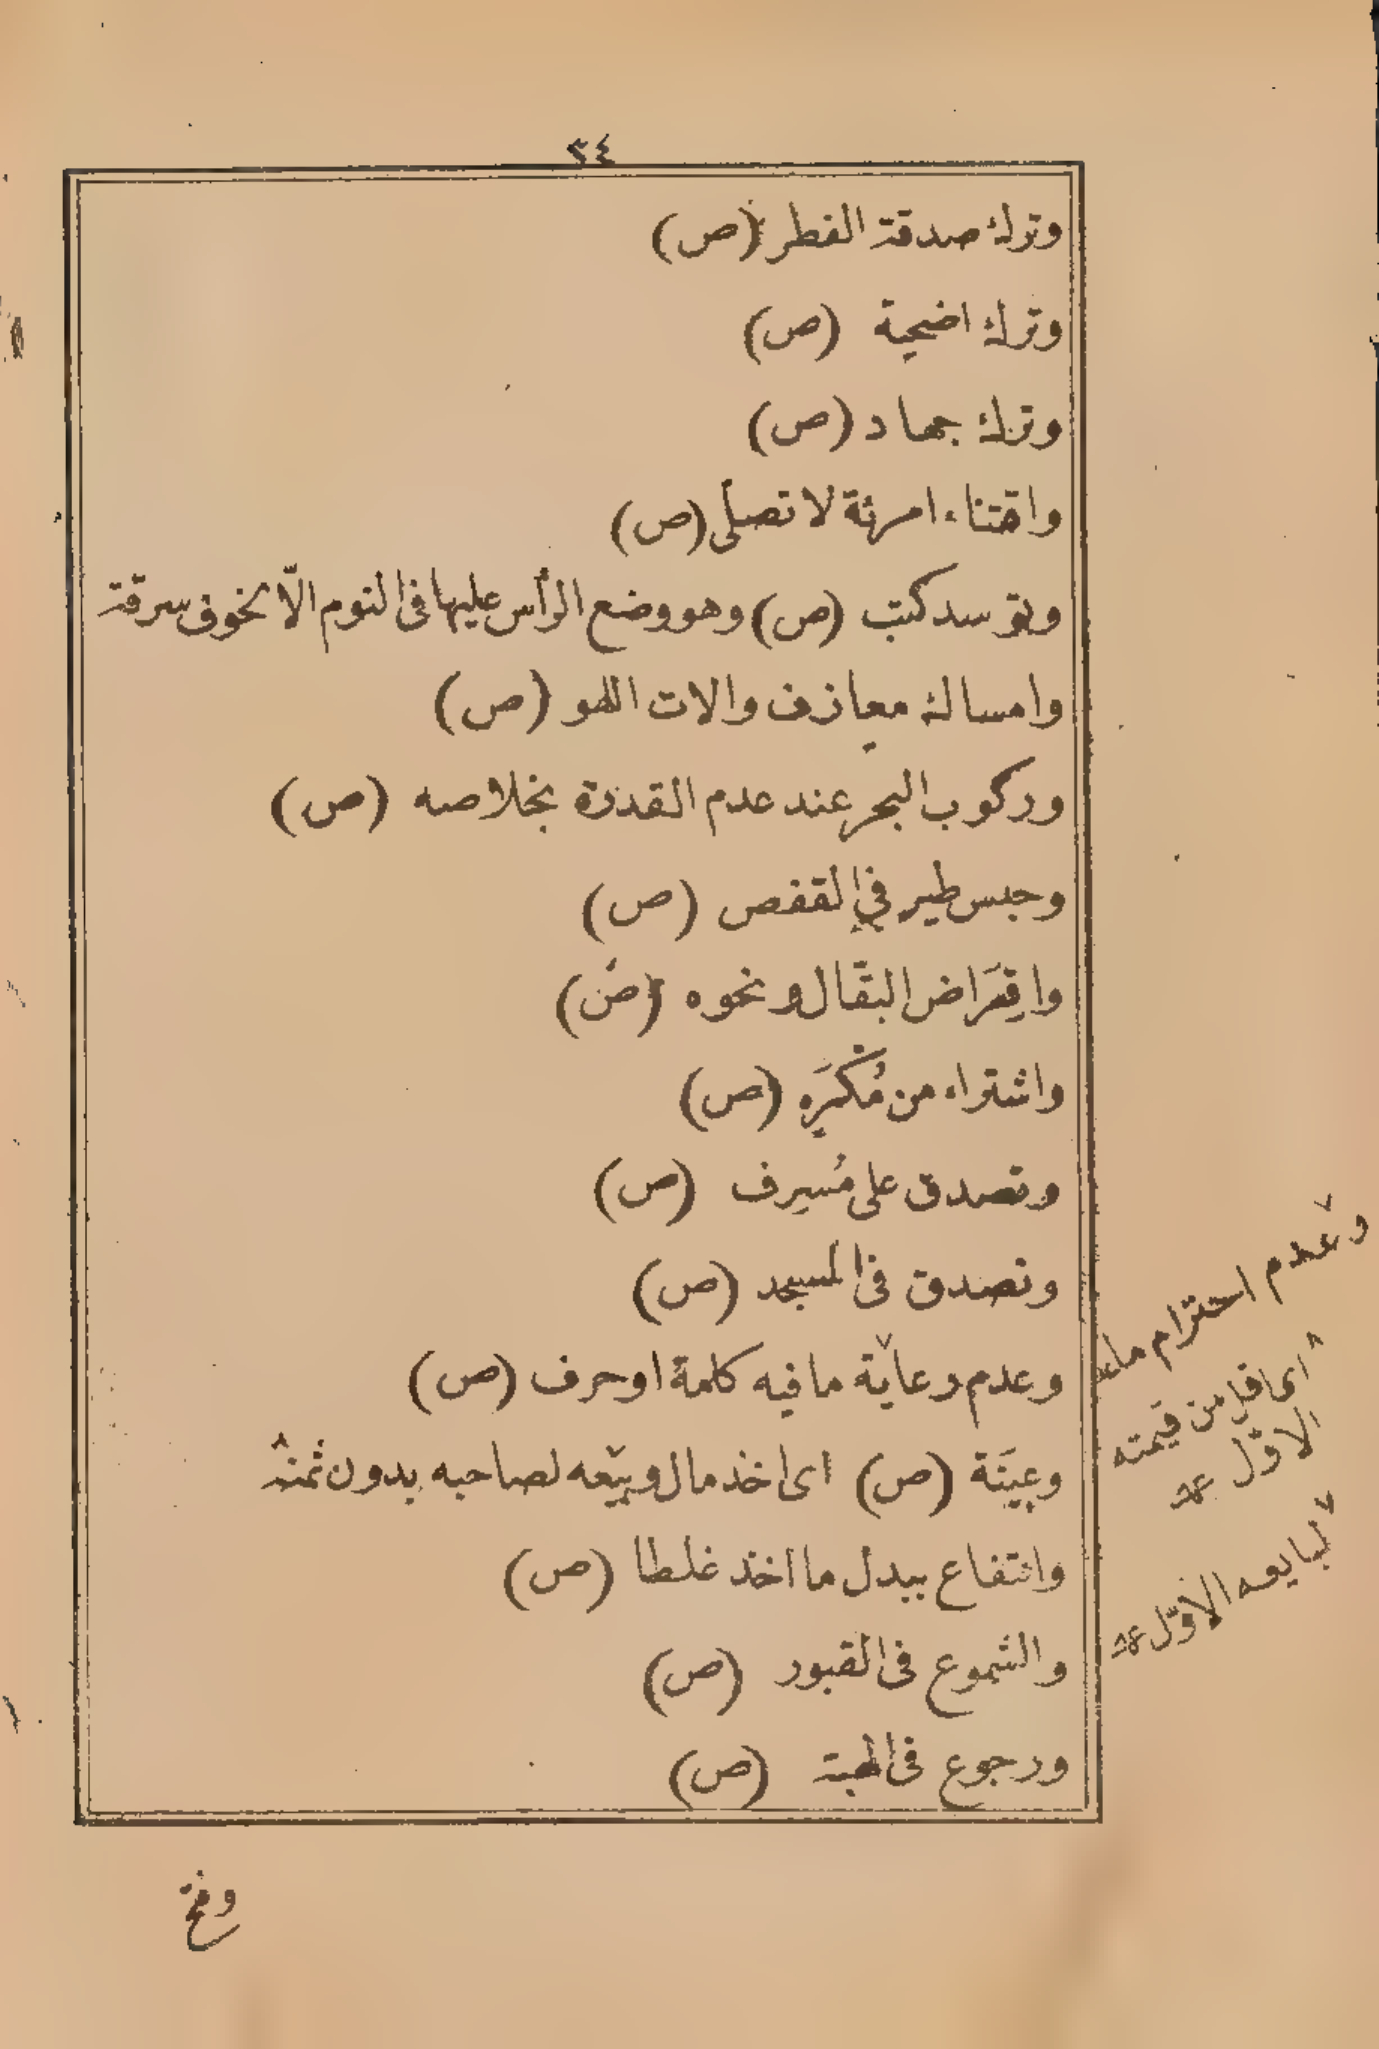 ٣٤
وترك صدقة الفطر (ص)
وترك اضحية (ص)
وترك جهاد (ص)
واقتناء امرئة لا تصلى (ص)
وتوسد كتب (ص) وهو وضع الرأس عليها فى النوم الّا لخوف سرقة
وامساك معازف والات اللهو (ص)
وركوب البحر عند عدم القدرة بخلاصه (ص)
وحبس طير في القفص (ص)
واقِرَاض البقّال ونحوه (ص)
واشتراء من مُكْرَهٍ (ص)
وتصدق على مُسرِف (ص)
وتصدق فى المسجد (ص)
وعدم رعاية ما فيه كلمة او حرف (ص)
وعِينَة (ص) اى اخذ مال وبيعه لصاحبه بدون ثمنه
وانتفاع ببدل ما اخذ غلطا (ص)
والشموع فى القبور (ص)
ورجوع فى الهبة (ص)
وعدم احترام ماء
اى اقل من قيمته
الاوّل
لبايعه الاوّل
وفتح